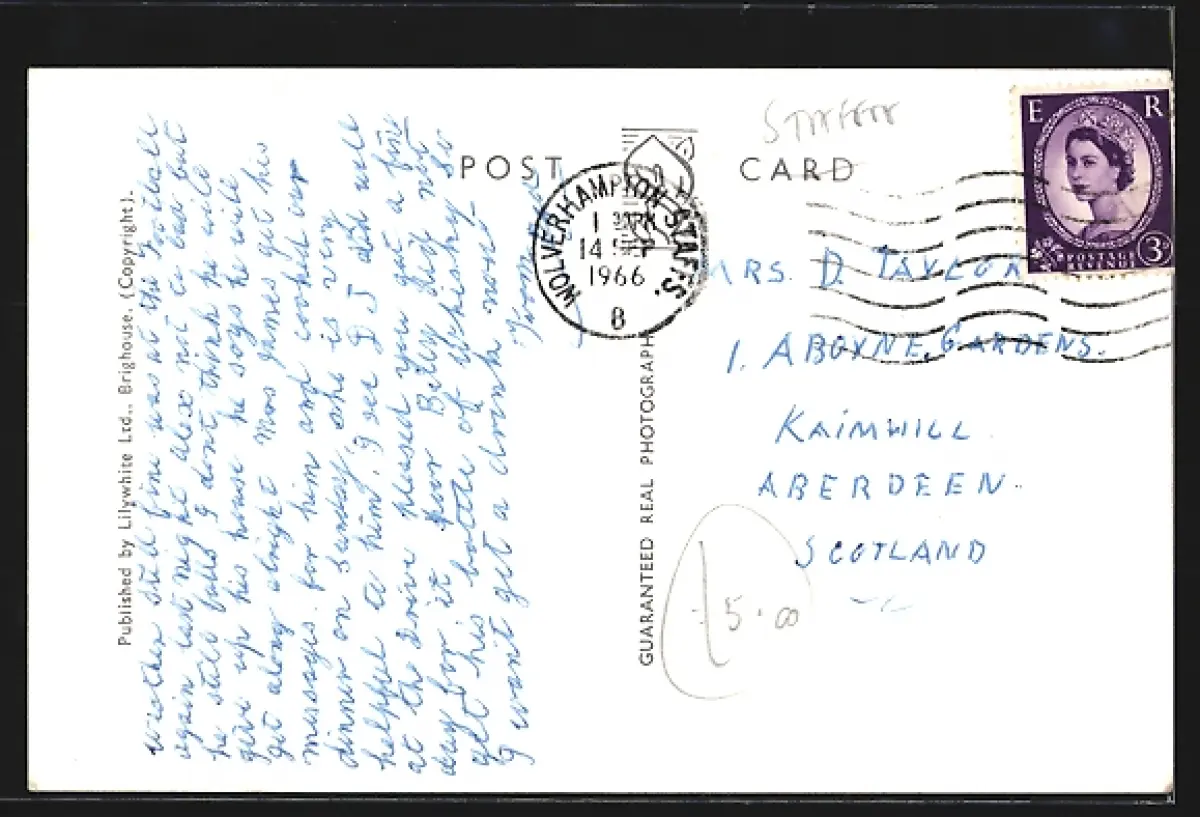 Published by Lilywhite Ltd., Brighouse. (Copyright).
weather still fine was at the
again last night alex not to bad but
he still falls I dont think he will
give up his house he says he will
get along alright Mrs James get his
messages for him and cooked up
dinner on Sunday she is very
helpful to him. I see D J did well
at the Drive pleased you got a fine
day for it poor Billy did not
get his bottle of Whisky so
I wont get a drink now
Tom
POST CARD
WOLVERHAMPTON STAFFS.
14 SEP
1966
B
GUARANTEED REAL PHOTOGRAPH
E R
POSTAGE
REVENUE
3D
MRS. D. TAYLOR
1. ABOYNE. GARDENS.
KAIMWILL
ABERDEEN.
SCOTLAND
£5.00